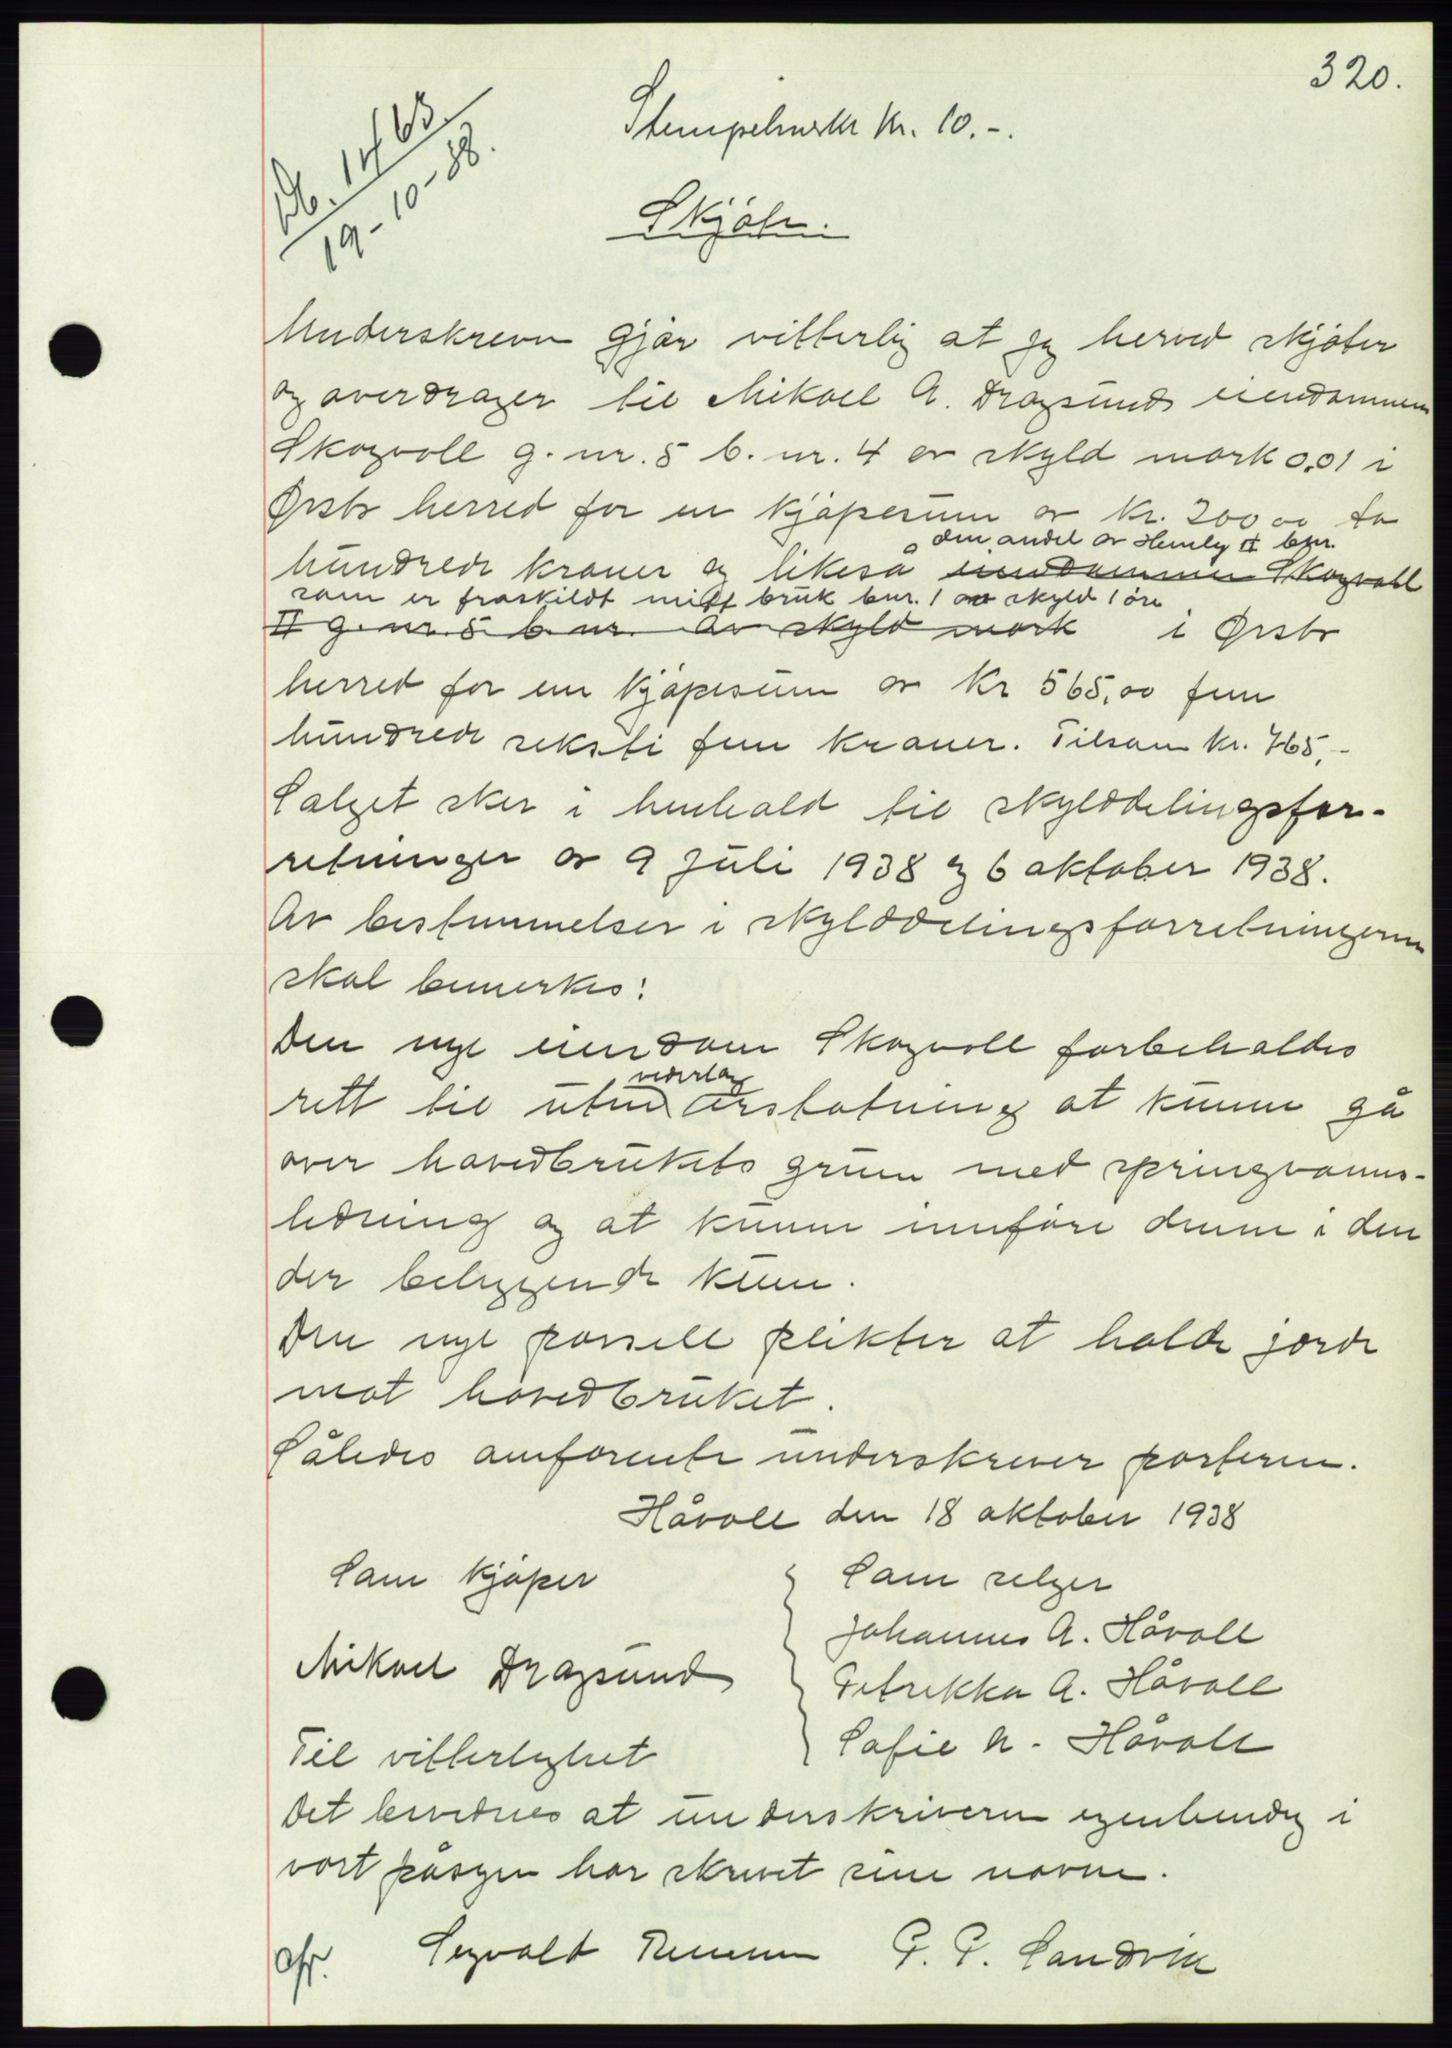 320.
Db. 1463
19-10-38.
Stempelmerke kr. 10.-.
Skjöte.
Underskrevne gjör vitterlig at jeg herved skjöter
og overdrager til Mikael A. Dragsund eiendommen
Skogvoll g. nr. 5 b. nr. 4 av skyld mark 0,01 i
Örsta herred for en kjöpesum av kr. 200 00 to
den andel av Hemly II bnr.
hundrede kroner og likeså eiendommen Skogvoll
som er fraskildt mitt bruk bnr. 1 av skyld 1 öre
II g. nr. 5 b. nr. av skyld mark i Örsta
herred for en kjöpesum av kr 565,00 fem
hundrede seksti fem kroner. Tilsam kr. 765,-
Salget sker i henhold til skylddelingsfor-
retninger av 9 juli 1938 og 6 oktober 1938.
Av bestemmelser i skylddelingsforretningerne
skal bemerkes:
Den nye eiendom Skogvoll forbeholdes
vederlag
rett til uten erstatning at kunne gå
over hovedbrukets grunn med springvanns-
ledning og at kunne innföre denne i den
der beliggende kum.
Den nye parsell plikter at holde gjerde
mot hovedbruket.
Således omforente underskriver partene.
Håvoll den 18 oktober 1938
Som kjöper
Som selger
Johannes A. Håvoll
Mikael Dragsund
Petrikka A. Håvoll
Sofie N. Håvoll
Til vitterlighet
Det bevidnes at underskriverne egenhendig i
vort påsyn har skrevet sine navne.
Sigvald P. P. Sandvik